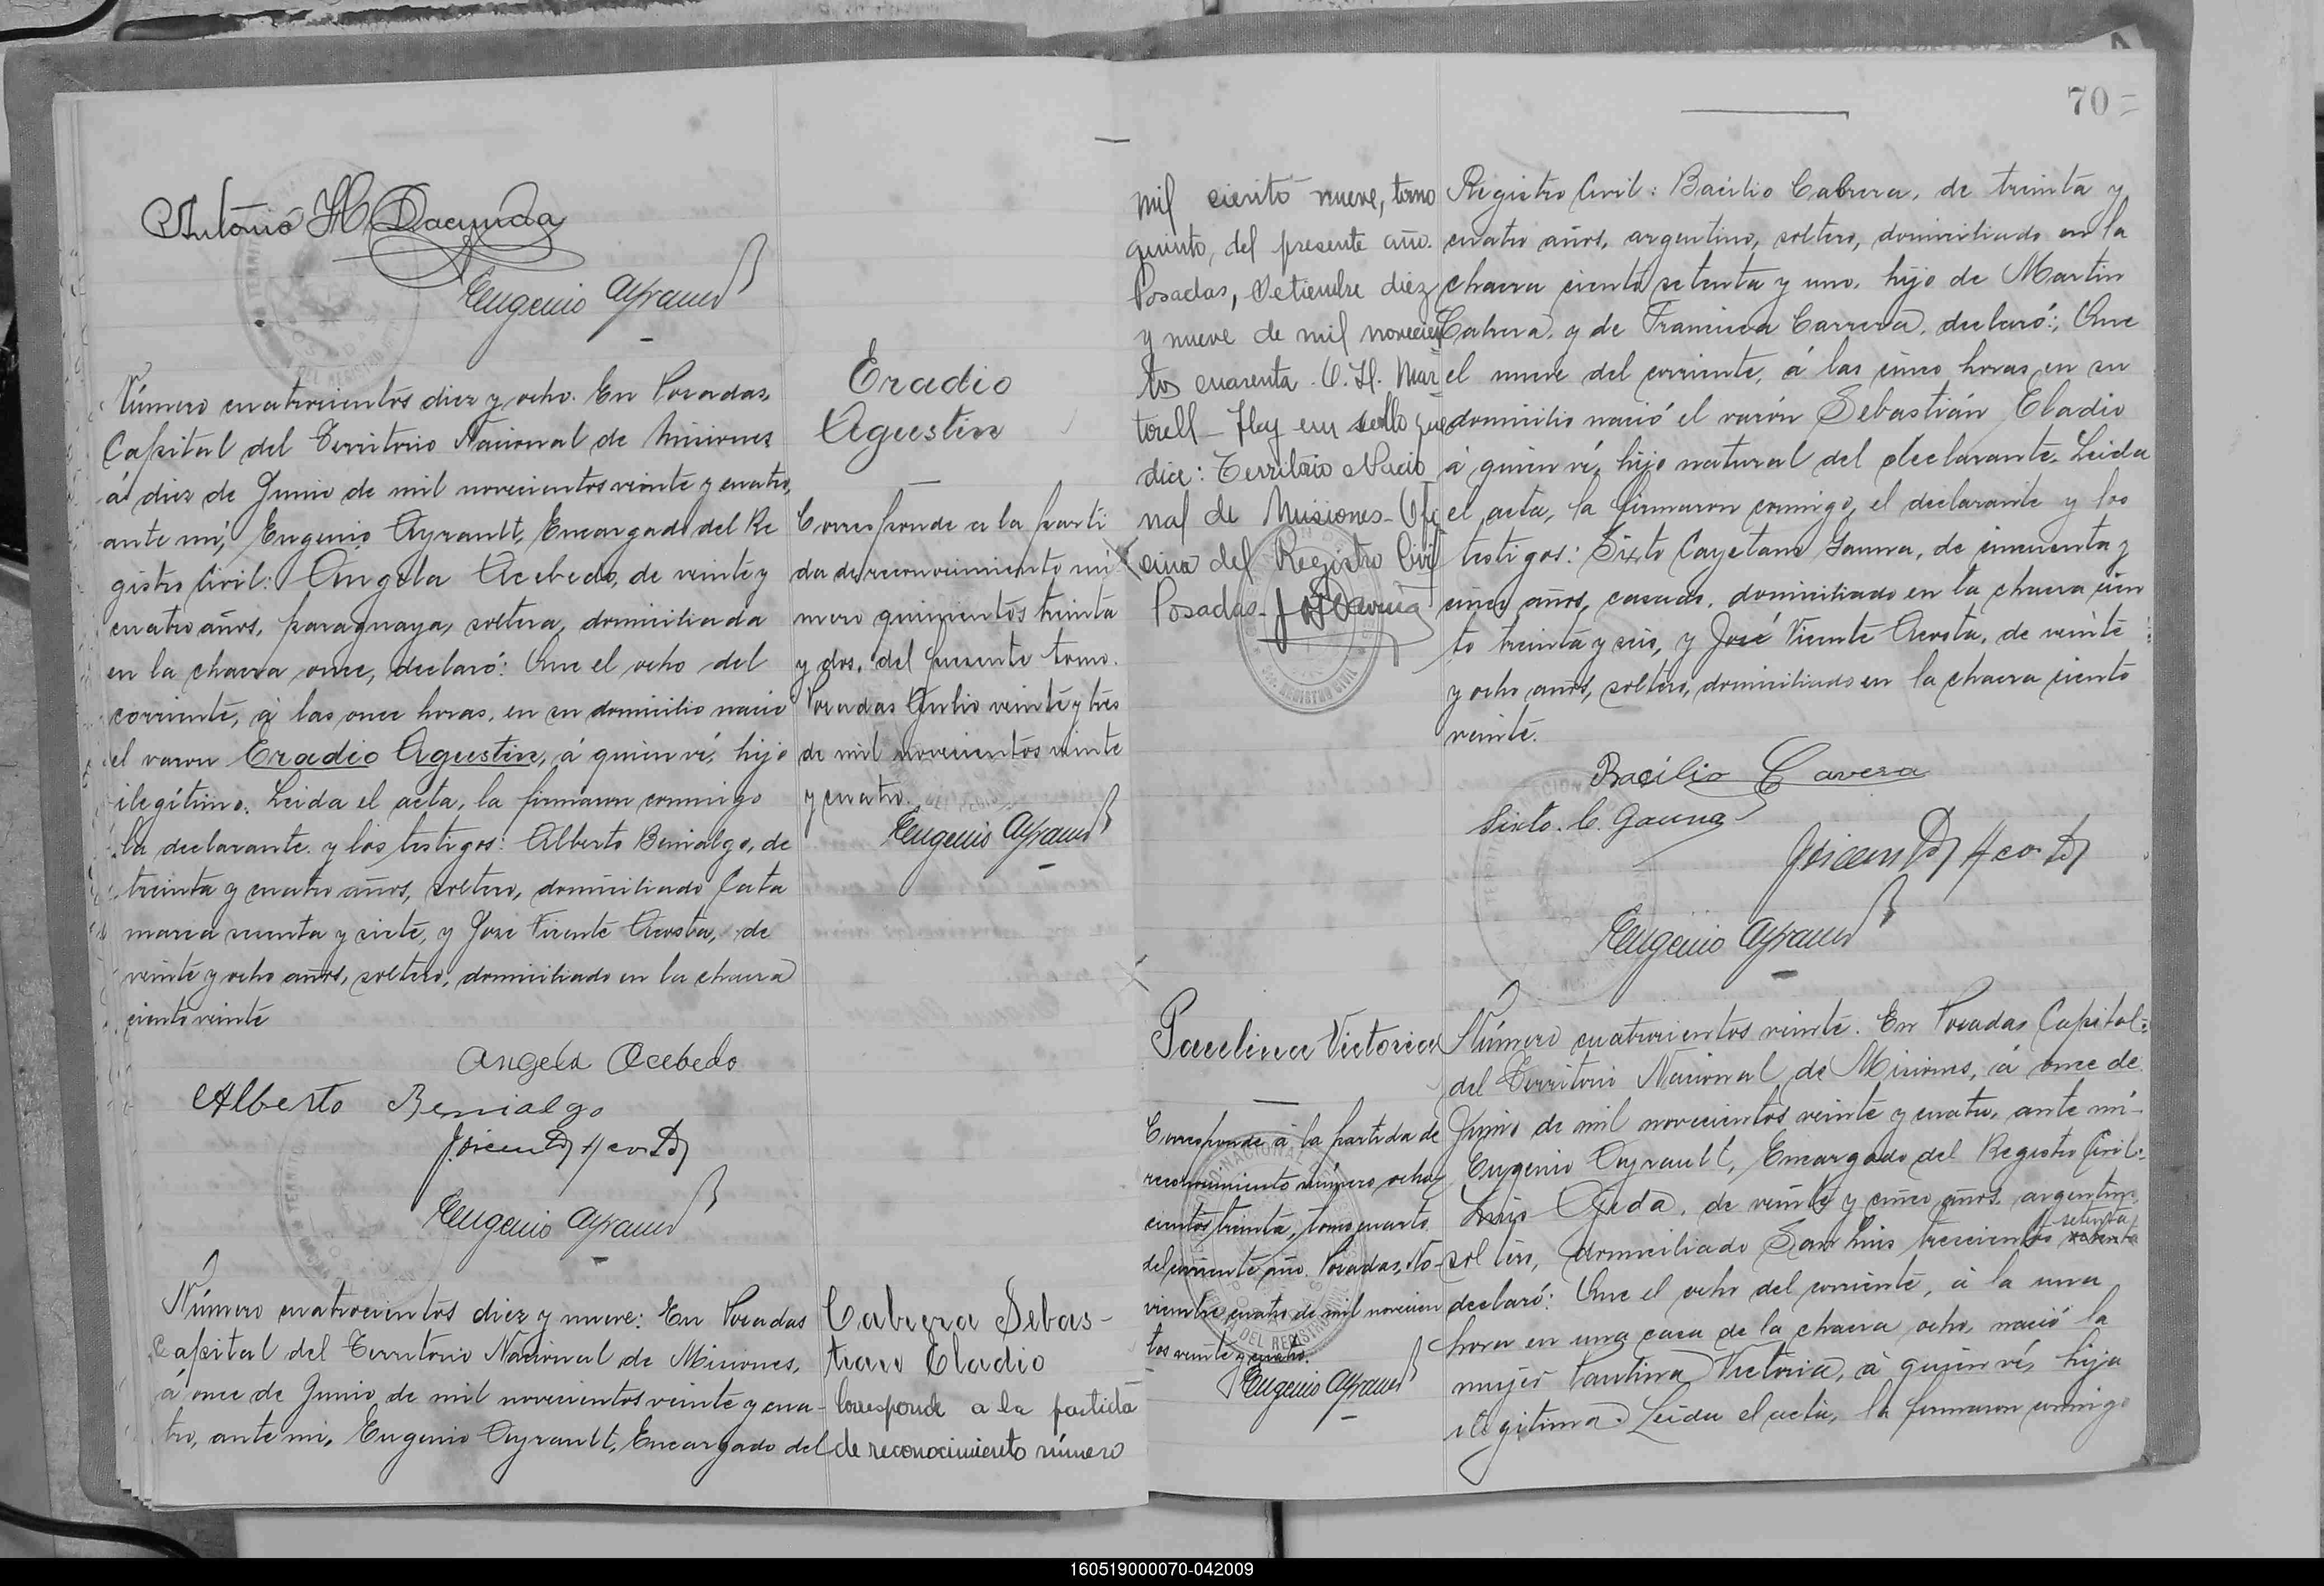 Antonio H Dacunda
Eugenio Ayrault
Número cuatrocientos diez y ocho. En Posadas,
Capital del Territorio Nacional de Misiones
á diez de Junio de mil novecientos veinte y cuatro,
ante mí, Eugenio Ayrault, Encargado del Re
gistro Civil: Angela Acebedo, de veinte y
cuatro años, paraguaya, soltera, domiciliada
en la chacra once, declaró: Que el ocho del
corriente, á las once horas, en su domicilio nació
el varon Eradio Agustin, á quien ví, hijo
ilegítimo. Leida el acta, la firmaron conmigo
la declarante y los testigos: Alberto Benialgo, de
treinta y cuatro años, soltero, domiciliado Cata
marca y siete, y José Vicente Acosta, de
veinte y ocho años, soltero, domiciliado en la chacra
ciento veinte
Angela Acebedo
Alberto Benialgo
J. Vicente Acosta
Eugenio Ayrault
Número cuatrocientos diez y nueve: En Posadas
Capital del Territorio Nacional de Misiones,
á once de Junio de mil novecientos veinte y cua-
tro, ante mi, Eugenio Ayrault, Encargado del
Eradio
Agustin
Corresponde a la parti
da de reconocimiento nú
mero quinientos treinta
y dos, del presente tomo.
Posadas Julio veinte y tres
de mil novecientos veinte
y cuatro.
Eugenio Ayrault
Cabrera Sebas-
tian Eladio
Corresponde a la partida
de reconocimiento número
mil ciento nueve, tomo
quinto, del presente año.
Posadas, Setiembre diez
y nueve de mil novecien
tos cuarenta. C. H. Mar
torell - Hay un sello que
dice: Territorio Nacio
nal de Misiones - Ofi
cina del Registro Civil
Posadas -
70
Registro Civil: Bacilio Cabrera, de treinta y
cuatro años, argentino, soltero, domiciliado en la
chacra ciento setenta y uno, hijo de Martin
Cabrera, y de Francisca Carrera, declaró: Que
el nueve del corriente, á las cinco horas, en su
domicilio nació el varón Sebastián Eladio
á quien ví, hijo natural del declarante. Leida
el acta, la firmaron conmigo, el declarante y los
testigos: Sixto Cayetano Gauna, de cincuenta y
cinco años, casado, domiciliado en la chacra cien
to treinta y seis, y José Vicente Acosta, de veinte
y ocho años, soltero, domiciliado en la chacra ciento
veinte.
Bacilio Cavera
Sixto. C. Gauna
J. Vicente Acosta
Eugenio Ayrault
Paulina Victoria
Corresponde á la partida de
reconocimiento número ocho
cientos treinta, tomo cuarto
del corriente año. Posadas, No-
viembre cuatro de mil novecien
tos veinte y cuatro.
Eugenio Ayrault
Número cuatrocientos veinte. En Posadas Capital
del Territorio Nacional de Misiones, á once de
Junio de mil novecientos veinte y cuatro, ante mí
Eugenio Ayrault, Encargado del Registro Civil:
Luis Ojeda, de veinte y cinco años, argentino
setenta
soltero, domiciliado San Luis trescientos
declaró: Que el ocho del corriente, á la una
hora en una casa de la chacra ocho, nació la
mujer Paulina Victoria, á quien ví, hija
ilegitima. Leida el acta, la firmaron conmigo
160519000070-042009